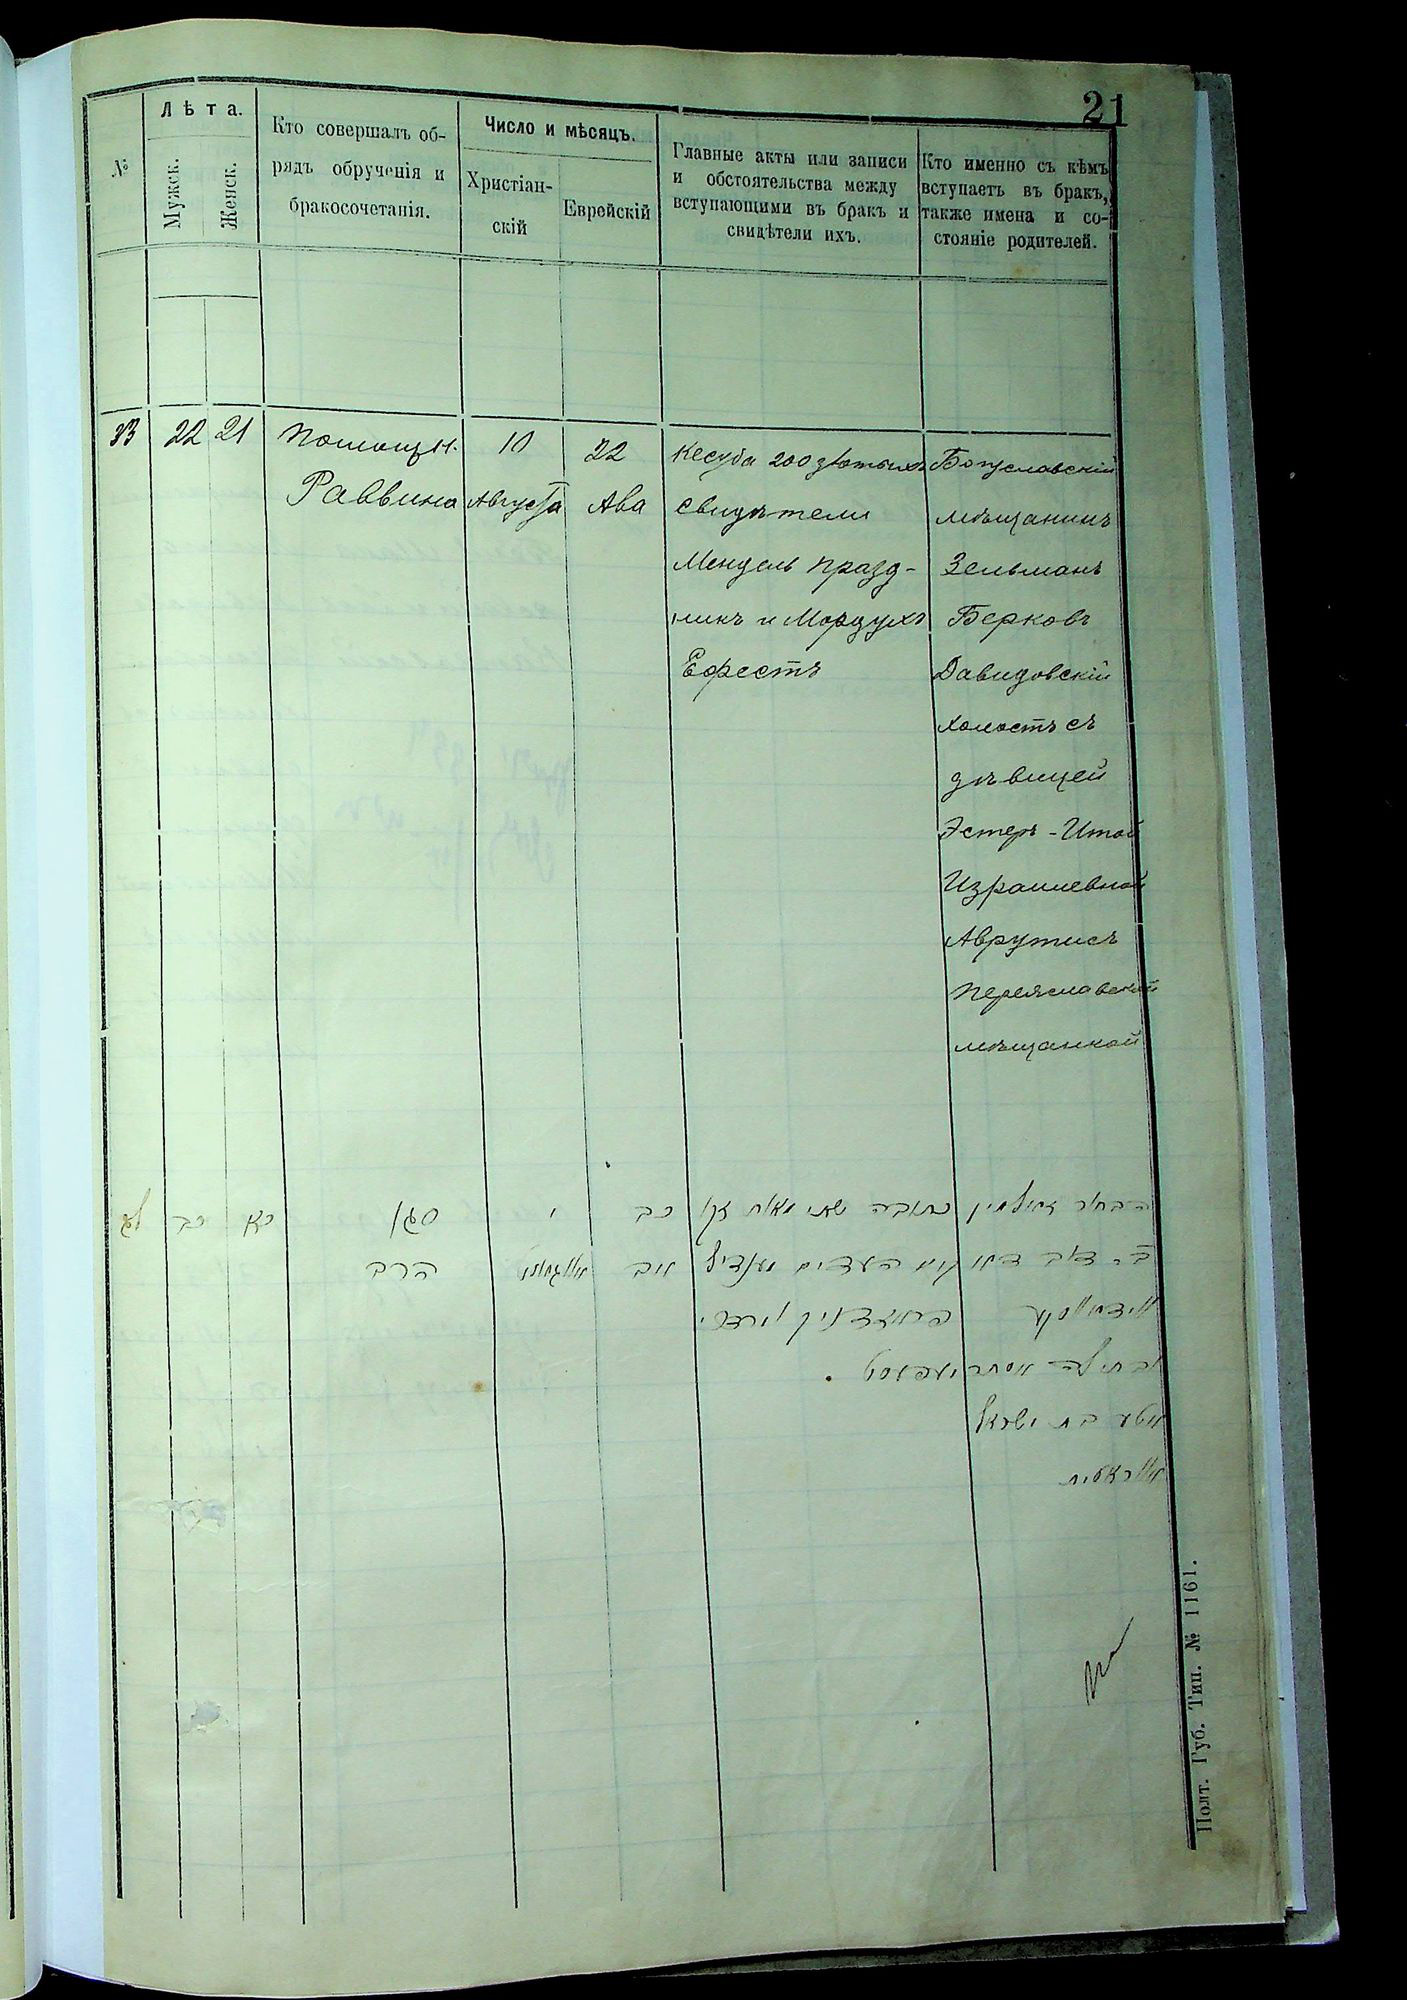 21
№
Лѣта.
Мужск.
Женск.
Кто совершалъ об-
рядъ обрученія и
бракосочетанія.
Число и мѣсяцъ.
Христіан-
скій
Еврейскій
Главные акты или записи
и обстоятельства между
вступающими въ бракъ и
свидѣтели ихъ.
Кто именно съ кѣмъ
вступаетъ въ бракъ,
также имена и со-
стояніе родителей.
33
22
21
Помощн.
Раввина
10
Августа
22
Ава
Кесуба 200 злотыхъ
свидѣтели
Мендель Празд-
никъ и Мордухъ
Ефестъ
Богуславскій
мѣщанинъ
Зельманъ
Берковъ
Давидовскій
холостъ съ
дѣвицей
Эстеръ-Итой
Израилевной
Аврутисъ
Переяславской
мѣщанкой
הבחור
כתובה
כב
אב
י
סגן
הרב
כא
כב
לג
העדים
אסתר
איטע בת ישראל
Полт. Губ. Тип. № 1161.